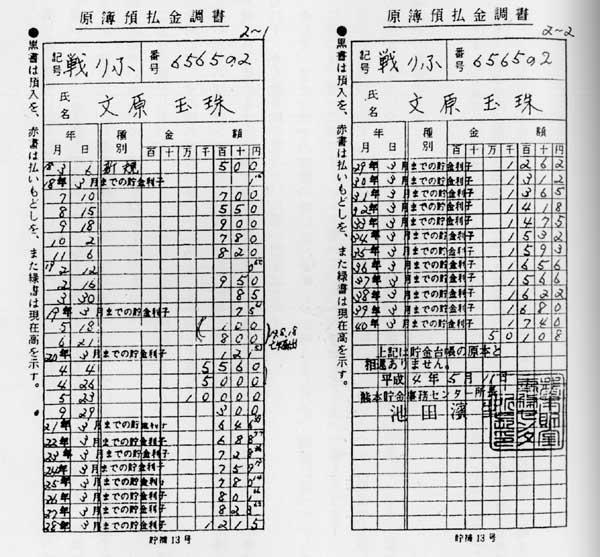 原簿預払金調書
2~1
●黒書は預入を、赤書は払いもどしを、また緑書は現在高を示す。
記号 戦りふ 番号 656502
氏名 文原 玉珠
年 月 日 種別 金 額
百 十 万 千 百 十 円
18 3 6 新規 500
18年 3月までの貯金利子
7 10 700
8 15 550
9 18 900
10 2 780
11 6 820
19
2 12
2 16 950
3 30 85
19年 3月までの貯金利子 75
5 18 100
6 21 800
20年 3月までの貯金利子 121
4 4 5560
4 26 5000
5 23 10000
9 29 300
21年 3月までの貯金利子 646
22年 3月までの貯金利子 688
23年 3月までの貯金利子 728
24年 3月までの貯金利子 759
25年 3月までの貯金利子 780
26年 3月までの貯金利子 801
27年 3月までの貯金利子 823
28年 3月までの貯金利子 1215
貯補13号
原簿預払金調書
2~2
●黒書は預入を、赤書は払いもどしを、また緑書は現在高を示す。
記号 戦りふ 番号 656502
氏名 文原 玉珠
年 月 日 種別 金 額
百 十 万 千 百 十 円
29年 3月までの貯金利子 1262
30年 3月までの貯金利子 1312
31年 3月までの貯金利子 1365
32年 3月までの貯金利子 1418
33年 3月までの貯金利子 1475
34年 3月までの貯金利子 1532
35年 3月までの貯金利子 1593
36年 3月までの貯金利子 1656
37年 3月までの貯金利子 1566
38年 3月までの貯金利子 1622
39年 3月までの貯金利子 1680
40年 3月までの貯金利子 1740
50108
上記は貯金台帳の原本と
相違ありません。
平成 4年 5月 11日
熊本貯金事務センター所長
池田 濱
貯補13号